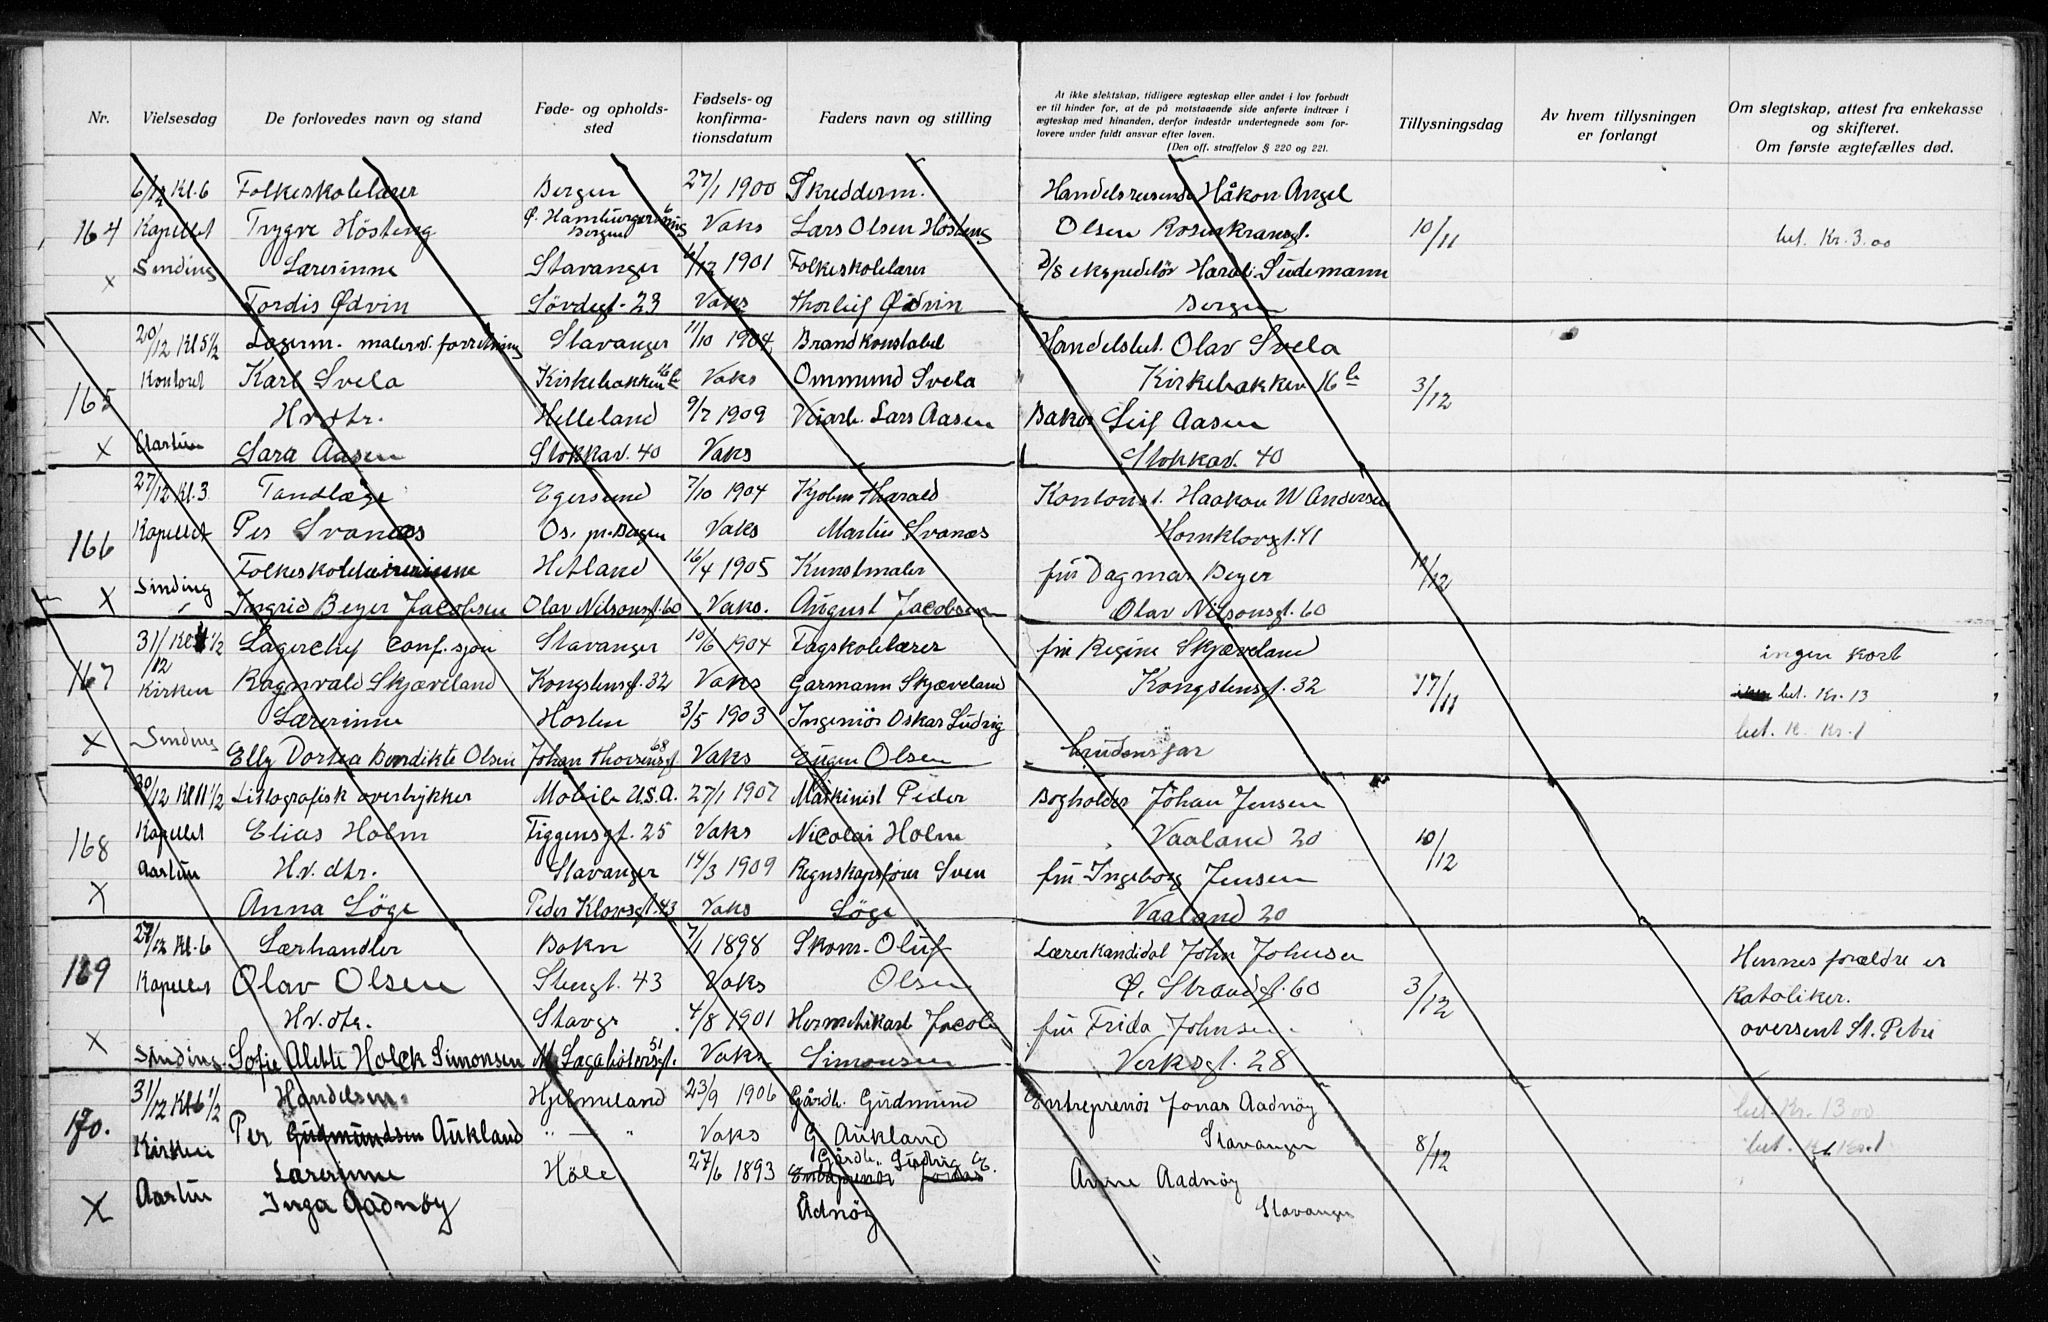 Nr.
Vielsesdag
De forlovedes navn og stand
Føde- og opholds-
sted
Fødsels- og
konfirma-
tionsdatum
Faders navn og stilling
At ikke slektskap, tidligere ægteskap eller andet i lov forbudt
er til hinder for, at de på motstaaende side anførte indtrær i
ægteskap med hinanden, derfor indestår undertegnede som for-
lovere under fuldt ansvar efter loven.
(Den off. straffelov § 220 og 221.
Tillysningsdag
Av hvem tillysningen
er forlangt
Om slegtskap, attest fra enkekasse
og skifteret.
Om første ægtefælles død.
6/12 Kl. 6 Folkeskolelærer Bergen 27/1 1900 Skredderm. Handelsreisende Håkon Angel
164 Kapellet Trygve Hösteng Bergen Vaks Lars Olsen Hösteng Olsen Rosenkransgt. 10/11 bet. Kr. 3.00
Sinding Lærerinne Stavanger /12 1901 Folkeskolelærer Haral. Südemann
x Tordis Ødvin Lövdegt. 23 Vaks Thorleif Ødvin Bergen
20/12 Kl 5 1/2 Lagerm. malerv. forretning Stavanger 11/10 1904 Brandkonstabel Handelsbet. Olav Svela
165 Kontoret Karl Svela Kirkebakken 16 b Vaks Ommund Svela Kirkebakken 16 b 3/12
H.v. dtr. Helleland 9/7 1909 Veiarb. Lars Aasen Baker Leif Aasen
x Aartun Sara Aasen Stokkav. 40 Vaks Stokkav. 40
27/12 Kl. 3 Tandlæge Egersund 7/10 1904 Kjøbm. Harald Kontorist. Haakon W Andersen
166 Kapellet Per Svanæs Os. pr. Bergen Vaks Martin Svanæs Hornklovgt. 41
Folkeskolelærerinne Hetland 16/4 1905 Kunstmaler fru Dagmar Beyer /12
x Sinding Ingrid Beyer Jacobsen Olav Nilsonsgt. 60 Vaks. August Jacobsen Olav Nilsonsgt. 60
31/12 Kl 1/2 Lagerchef conf.sjon Stavanger 10/6 1904 Fagskolelærer fru Regine Skjæveland ingen kort
167 Kirken Ragnvald Skjæveland Kongstensgt. 32 Vaks Garmann Skjæveland Kongstensgt. 32 17/11 bet. Kr. 13
Lærerinne Horten 3/5 1903 Ingeniör Oskar Ludvig bet. K. Kr. 1
x Sinding Elly Dortea Bendikte Olsen Johan Thorsensgt. 68 Vaks Eugen Olsen
30/12 Kl 11 1/2 Litografisk overtrykker Mobile U.S.A. 27/1 1907 Maskinist Peder Bogholder Johan Jensen
168 Kapellet Elias Holm Tiggensgt. 25 Vaks Nicolai Holm Vaaland 20 10/12
Aartun H.v. dtr. Stavanger 14/3 1909 Regnskapsfører Sven fru Ingeborg Jensen
x Anna Löge Peder Klowsgt. 43 Vaks Löge Vaaland 20
27/12 Kl. 6 Lærhandler Bokn 7/1 1898 Skom. Oluf Lærerkandidat John Johnsen Hennes forældre er
169 Kapellet Olav Olsen Stengt. 43 Vaks Olsen Ø. Strandgt. 60 3/12 katoliker.
H.v. dtr. Stavgr 4/8 1901 Hermetikarb Jacob fru Frida Johnsen oversent St. Petri
x Sinding Sofie Alette Holck Simonsen M. Sagabölersgt. 51 Vaks Simonsen Verksgt. 28
31/12 Kl 6 1/2 Handelsm. Hjelmeland 23/9 1906 Gårdb. Gudmund Entreprenör Jonas Aadnöy bet. Kr. 13 00
170. Kirken Per Gudmundsen Aukland " — " Vaks G. Aukland Stavanger 8/12 bet. K. Kr. 1
Lærerinne Höle 27/6 1893 Gårdb. Ludvig Anne Aadnöy
x Aartun Inga Aadnöy Ådnöy Stavanger